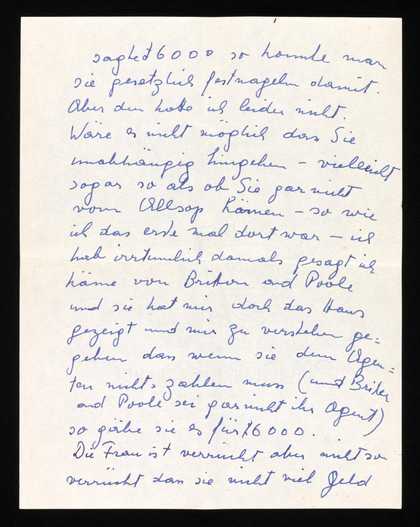 sagte £6000 so konnte man
sie gesetzlich festnageln damit.
Aber den habe ich leider nicht.
Wäre es nicht möglich dass Sie
unabhängig hingehen – vielleicht
sogar so als ob Sie gar nicht
vom Ellsop kämen – so wie
ich das erste mal dort war – ich
hab irrtümlich damals gesagt ich
käme von Briton and Poole
und sie hat mir doch das Haus
gezeigt und mir zu verstehen ge-
geben dass wenn sie dem Agen-
ten nichts zahlen muss (und
and Poole sei gar nicht ihr Agent)
so gäbe sie es für £6000.
Die Frau ist verrückt aber nicht so
verrückt dass sie nicht viel Geld